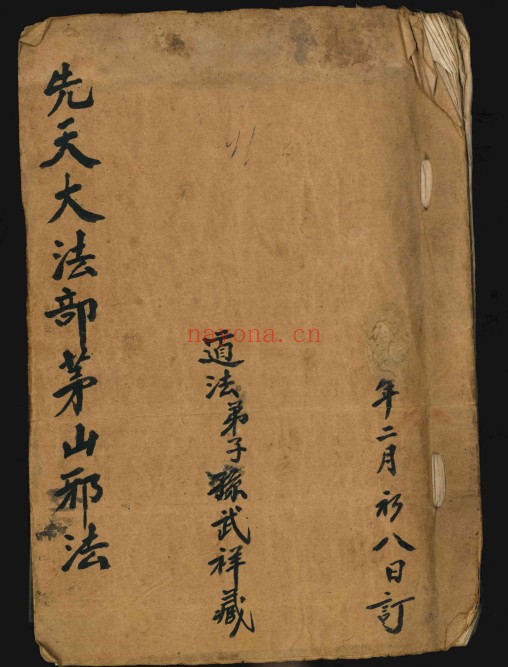 年二月初八日訂
道法弟子孫武祥藏
先天大法部茅山邪法
nayona.cn